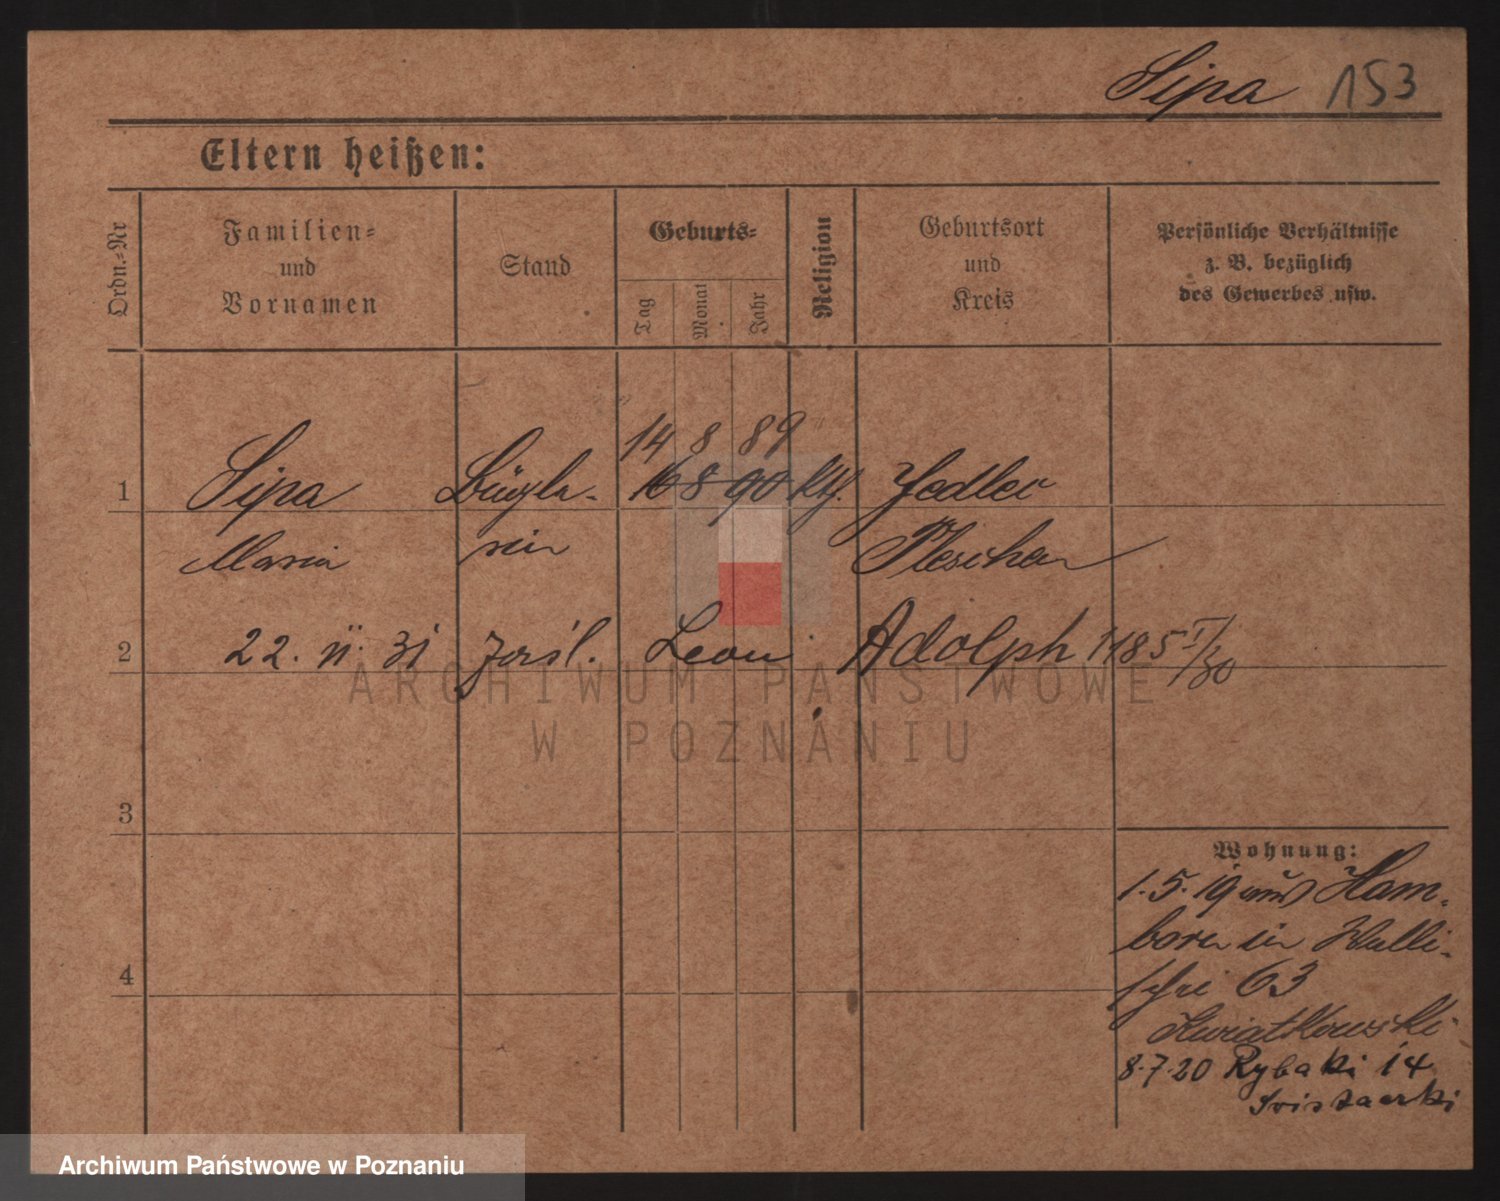 Sipa 153
Eltern heißen:
Ordn.-Nr
Familien-
und
Vornamen
Stand
Geburts-
Tag
Monat
Jahr
Religion
Geburtsort
und
Kreis
Persönliche Verhältnisse
z. B. bezüglich
des Gewerbes usw.
14 8 89
1 Sipa Bügle- 16 8 90 kth. Jedlec
Maria rin Pleschen
2 22. 11. 31 Leon Adolph 1185 I/30
3
Wohnung:
1.5.19 aus Ham-
born in Walli-
schei 63
4
Kwiatkowski
8.7.20 Rybaki 14
ARCHIWUM PAŃSTWOWE
W POZNANIU
Archiwum Państwowe w Poznaniu